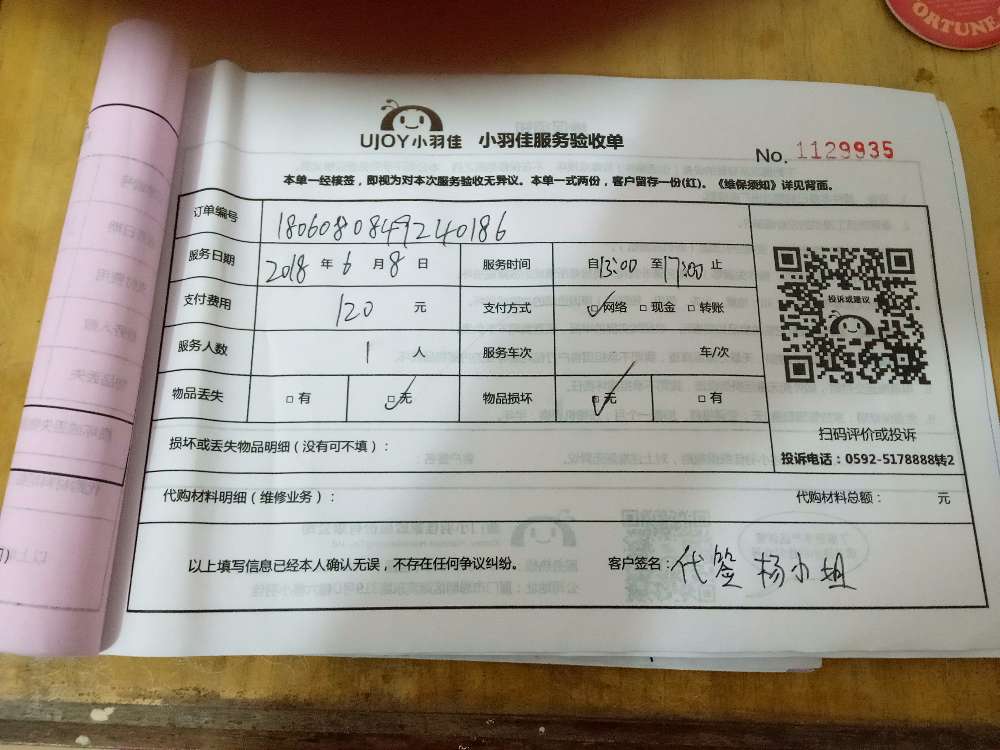 ORTUNE
UJOY小羽佳 小羽佳服务验收单
No. 1129935
本单一经核签，即视为对本次服务验收无异议。本单一式两份，客户留存一份(红)。《维保须知》详见背面。
订单编号 1806080849240186
服务日期 2018 年 6 月 8 日 服务时间 自13:00 至17:00 止
支付费用 120 元 支付方式 ☑网络 □现金 □转账
投诉或建议
服务人数 1 人 服务车次 车/次
物品丢失 □有 ☑无 物品损坏 ☑无 □有
扫码评价或投诉
损坏或丢失物品明细（没有可不填）：
投诉电话：0592-5178888转2
代购材料明细（维修业务）： 代购材料总额： 元
以上填写信息已经本人确认无误，不存在任何争议纠纷。 客户签名：代签 杨小姐